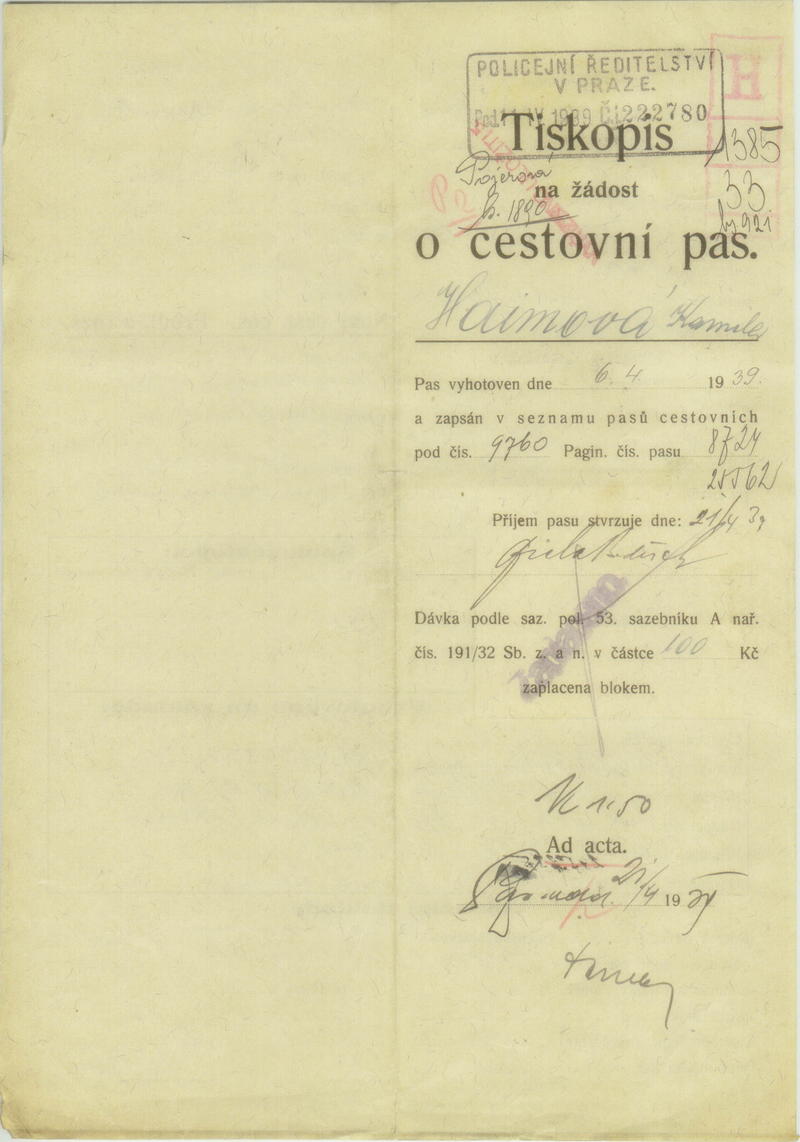 POLICEJNÍ ŘEDITELSTVÍ
V PRAZE.
1939 Č.j. 222780
H
Tiskopis
1385
Pojerová
na žádost
33
1890
o cestovní pas.
Haimová Kamila
Pas vyhotoven dne 6. 4. 1939.
a zapsán v seznamu pasů cestovních
pod čís. 9760 Pagin. čís. pasu 8724
Příjem pasu stvrzuje dne: 21/4 39
Dávka podle saz. pol. 53. sazebníku A nař.
čís. 191/32 Sb. z. a n. v částce 100 Kč
zaplacena blokem.
1·50
Ad acta.
21/4 1939